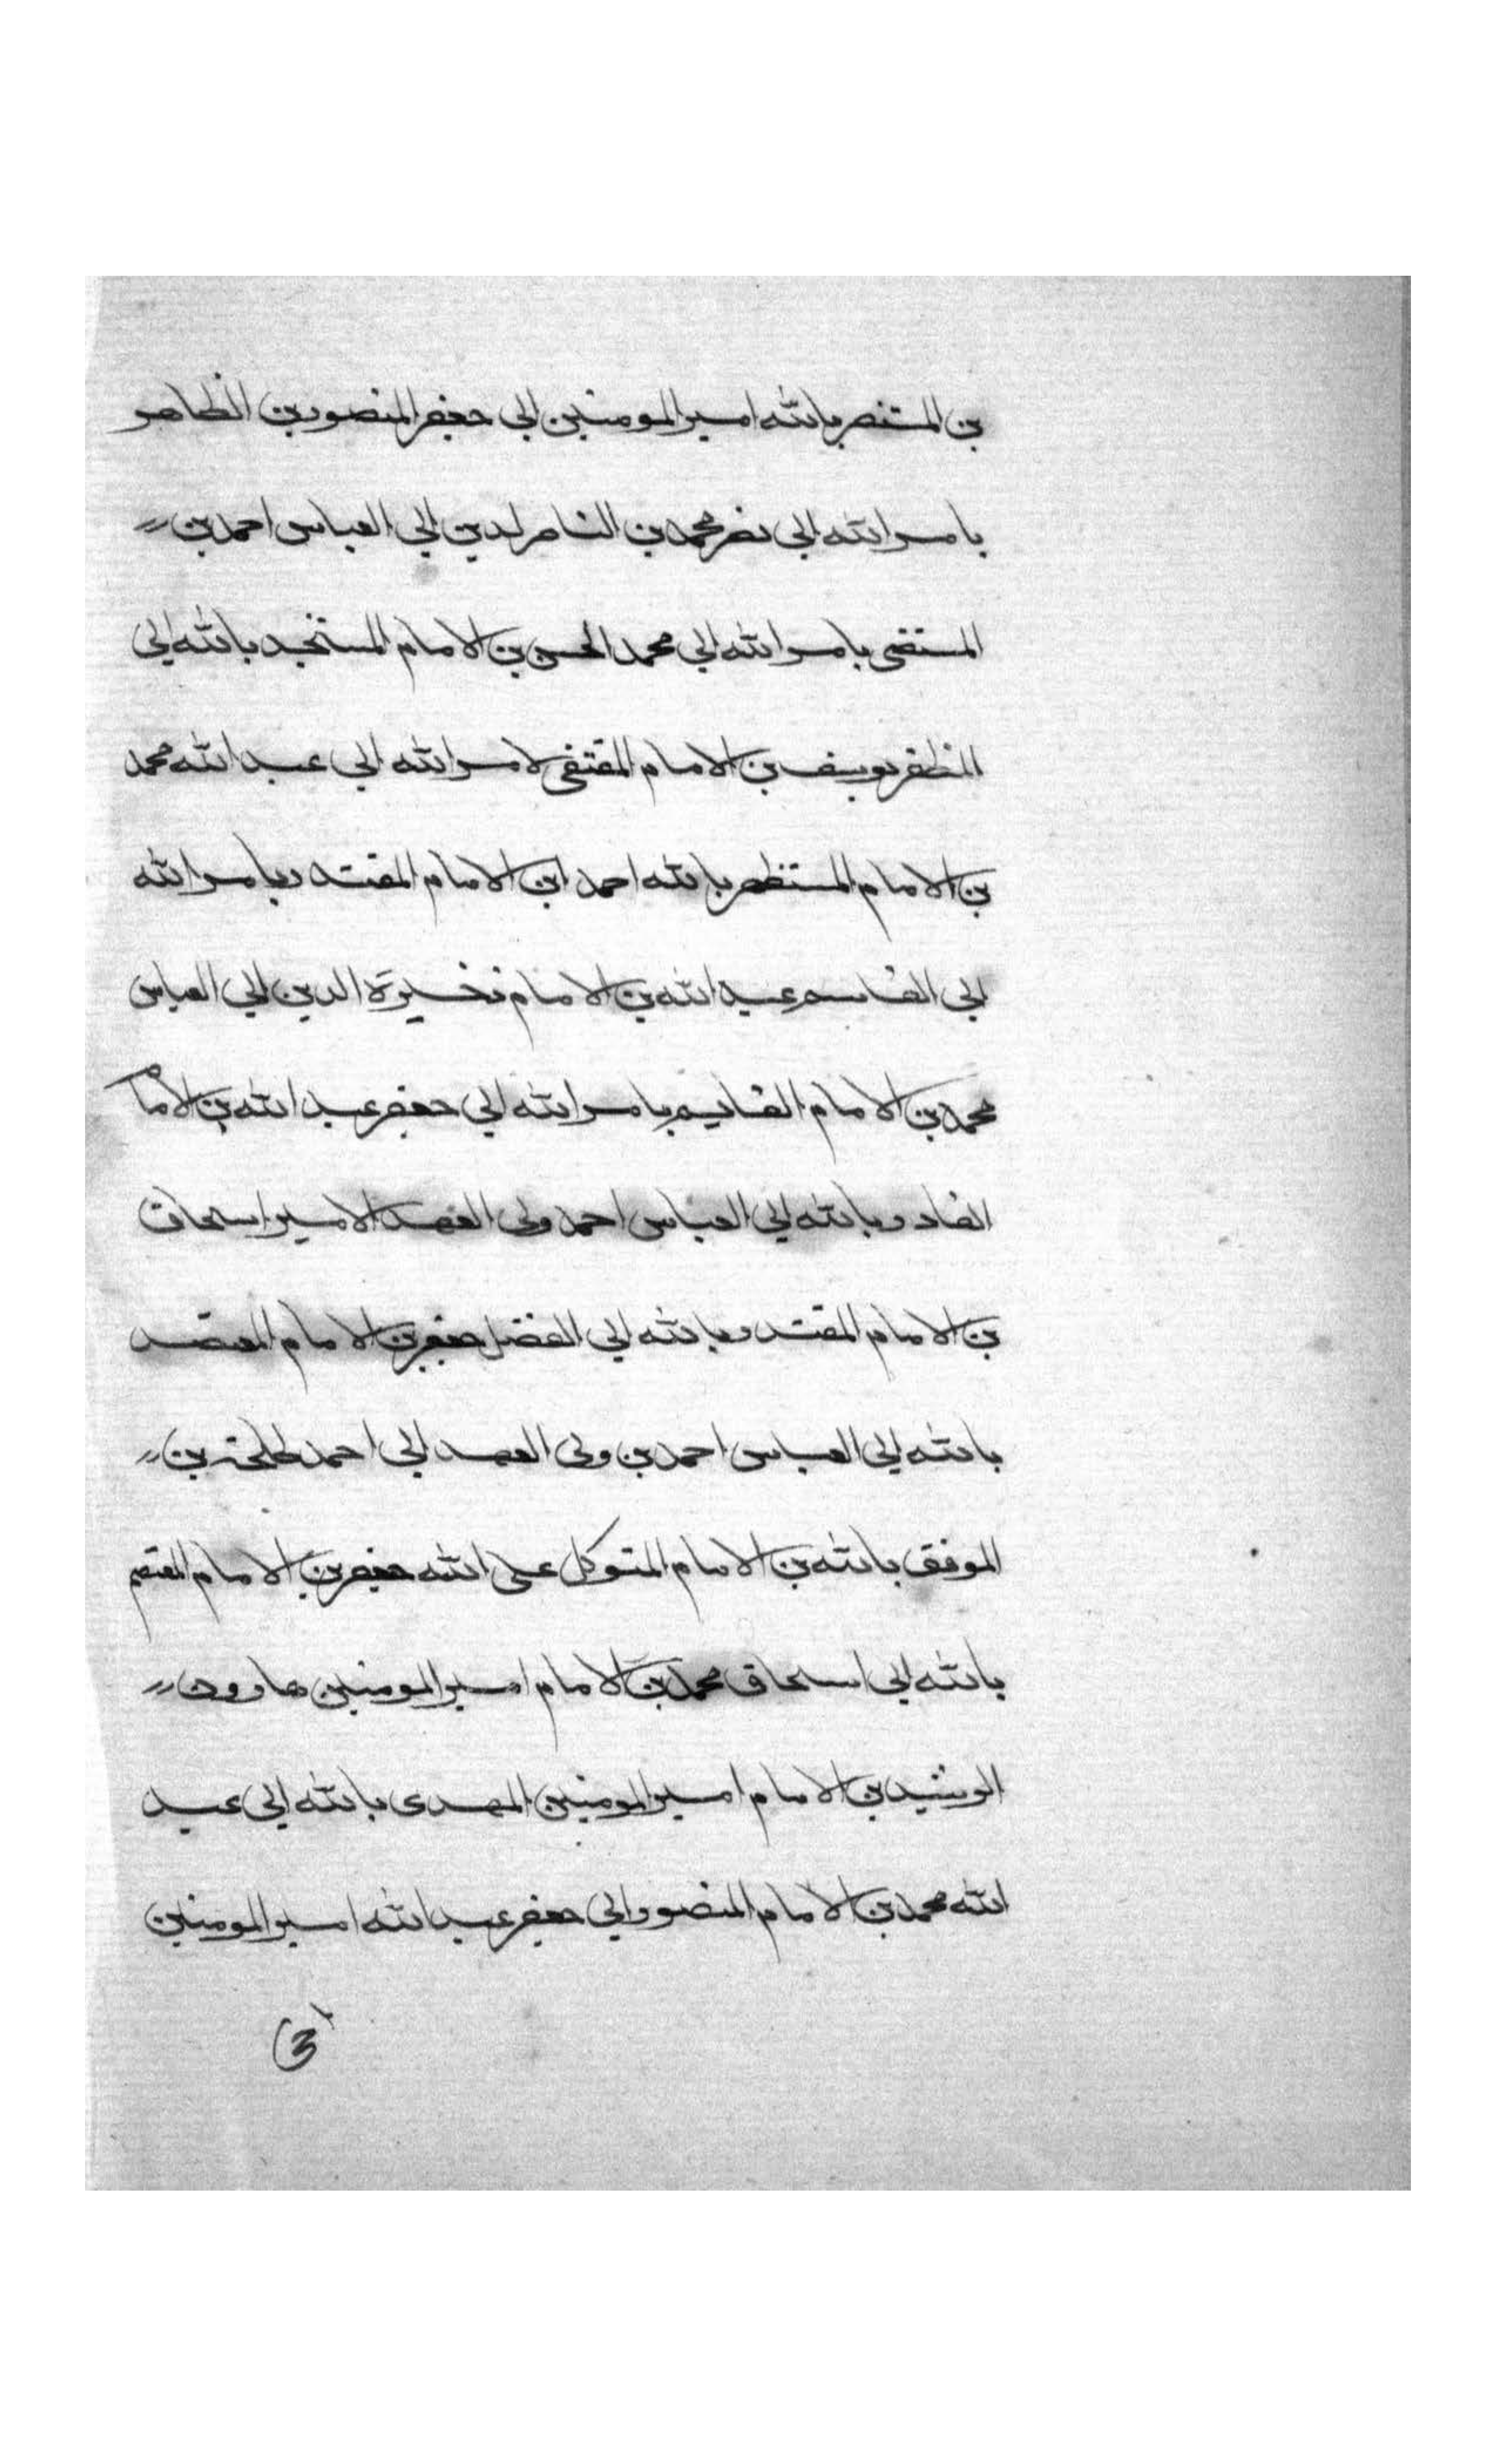 بن المستنصر بالله امير المومنين ابي جعفر المنصور بن الظاهر
بامر الله ابي نصر محمد بن الناصر لدين ابي العباس احمد بن
المستضى بامر الله ابي محمد الحسن بن الامام المستنجد بالله ابي
المظفر يوسف بن الامام المقتفى لامر الله ابي عبد الله محمد
بن الامام المستظهر بالله احمد ابن الامام المقتدى بامر الله
ابي القاسم عبد الله بن الامام ذخيرة الدين ابي العباس
محمد بن الامام القايم بامر الله ابي جعفر عبد الله بن الامام
القادر بالله ابي العباس احمد ولى العهد الامير اسحاق
بن الامام المقتدر بالله ابي الفضل جعفر بن الامام المعتضد
بالله ابي العباس احمد بن ولى العهد ابي احمد طلحة بن
الموفق بالله بن الامام المتوكل على الله جعفر بن الامام المعتصم
بالله ابي اسحاق محمد بن الامام امير المومنين هارون
الرشيد بن الامام امير المومنين المهدى بالله ابي عبد
الله محمد بن الامام المنصور ابي جعفر عبد الله امير المومنين